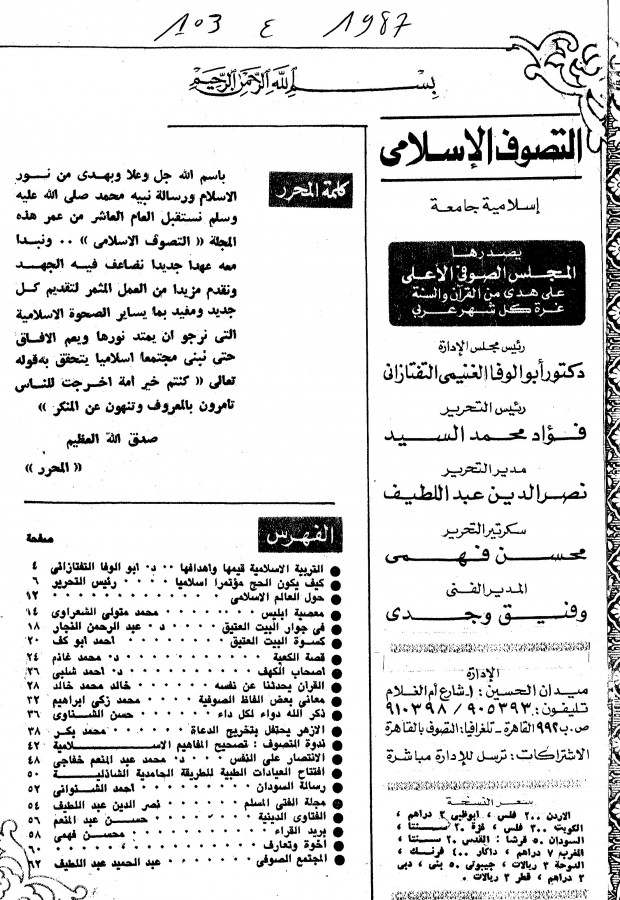 103 ع 1987
بسم الله الرحمن الرحيم
التصوف الإسلامى
إسلامية جامعة
يصدرها
المجلس الصوفى الأعلى
على هدى من القرآن والسنة
غرة كل شهر عربي
رئيس مجلس الإدارة
دكتور أبو الوفا الغنيمى التفتازانى
رئيس التحرير
فؤاد محمد السيد
مدير التحرير
نصر الدين عبد اللطيف
سكرتير التحرير
محسن فهمى
المدير الفنى
وفيق وجدى
الإدارة
ميدان الحسين: ١ شارع أم الغلام
تليفون: ٩٠٥٣٩٣ / ٩١٠٣٩٨
ص.ب ٩٩٢ القاهرة - تلغرافيا: التصوف بالقاهرة
الاشتراكات: ترسل للإدارة مباشرة
سعر النسخة
الاردن ٢٠٠ فلس ، ابوظبى ٣ دراهم ،
الكويت ٣٠٠ فلس ، غزة ٢٠ سنتا ،
السودان ٥٠ قرشا : القدس ٢٠ سنتا ،
المغرب ٧ دراهم ، داكار ٤٠٠ فرنك ،
الدوحة ٣ ريالات ، جيبوتى ٥٠ بنى ، دبى
٣ دراهم ، قطر ٣ ريالات .
كلمة المحرر
باسم الله جل وعلا وبهدى من نور
الاسلام ورسالة نبيه محمد صلى الله عليه
وسلم نستقبل العام العاشر من عمر هذه
المجلة « التصوف الاسلامى » .. ونبدا
معه عهدا جديدا نضاعف فيه الجهد
ونقدم مزيدا من العمل المثمر لتقديم كل
جديد ومفيد بما يساير الصحوة الاسلامية
التى نرجو ان يمتد نورها ويعم الافاق
حتى نبنى مجتمعا اسلاميا يتحقق به قوله
تعالى « كنتم خير امة اخرجت للناس
تامرون بالمعروف وتنهون عن المنكر »
صدق الله العظيم
« المحرر »
الفهرس
صفحة
التربية الاسلامية قيمها واهدافها ٠٠ د٠ ابو الوفا التفتازانى ٤
كيف يكون الحج مؤتمرا اسلاميا ٠٠٠٠ رئيس التحرير ٦
حول العالم الاسلامى ٠٠٠٠٠٠٠٠٠ ١٢
معصية ابليس ٠٠٠٠٠٠ محمد متولى الشعراوى ١٤
فى جوار البيت العتيق ٠٠٠ د٠ عبد الرحمن النجار ١٨
كسوة البيت العتيق ٠٠٠٠٠٠ احمد ابو كف ٢٠
قصة الكعبة ٠٠٠٠٠٠٠ د٠ محمد غانم ٢٤
اصحاب الكهف ٠٠٠٠٠٠ د٠ احمد شلبى ٢٦
القران يحدثنا عن نفسه ٠٠٠٠ خالد محمد خالد ٢٨
معانى بعض الفاظ الصوفية ٠٠٠ محمد زكى ابراهيم ٣٢
ذكر الله دواء لكل داء ٠٠٠٠ حسن الشناوى ٣٦
الازهر يحتفل بتخريج الدعاة ٠٠٠٠ محمد بكر ٣٨
ندوة التصوف : تصحيح المفاهيم الاسلامية ٤٢
الانتصار على النفس ٠٠٠ د٠ محمد عبد المنعم خفاجى ٤٨
افتتاح العيادات الطبية للطريقة الحامدية الشاذلية ٥٠
رسالة السودان ٠٠٠٠٠٠ احمد الشنوانى ٥٢
مجلة الفتى المسلم ٠٠٠٠ نصر الدين عبد اللطيف ٥٤
الفتاوى الدينية ٠٠٠٠٠ حسن عبد المنعم ٥٦
بريد القراء ٠٠٠٠٠٠٠ محسن فهمى ٥٨
اخوة وتعارف ٠٠٠٠٠٠٠٠٠ ٦٠
المجتمع الصوفى ٠٠٠٠٠٠ عبد الحميد عبد اللطيف ٦٢